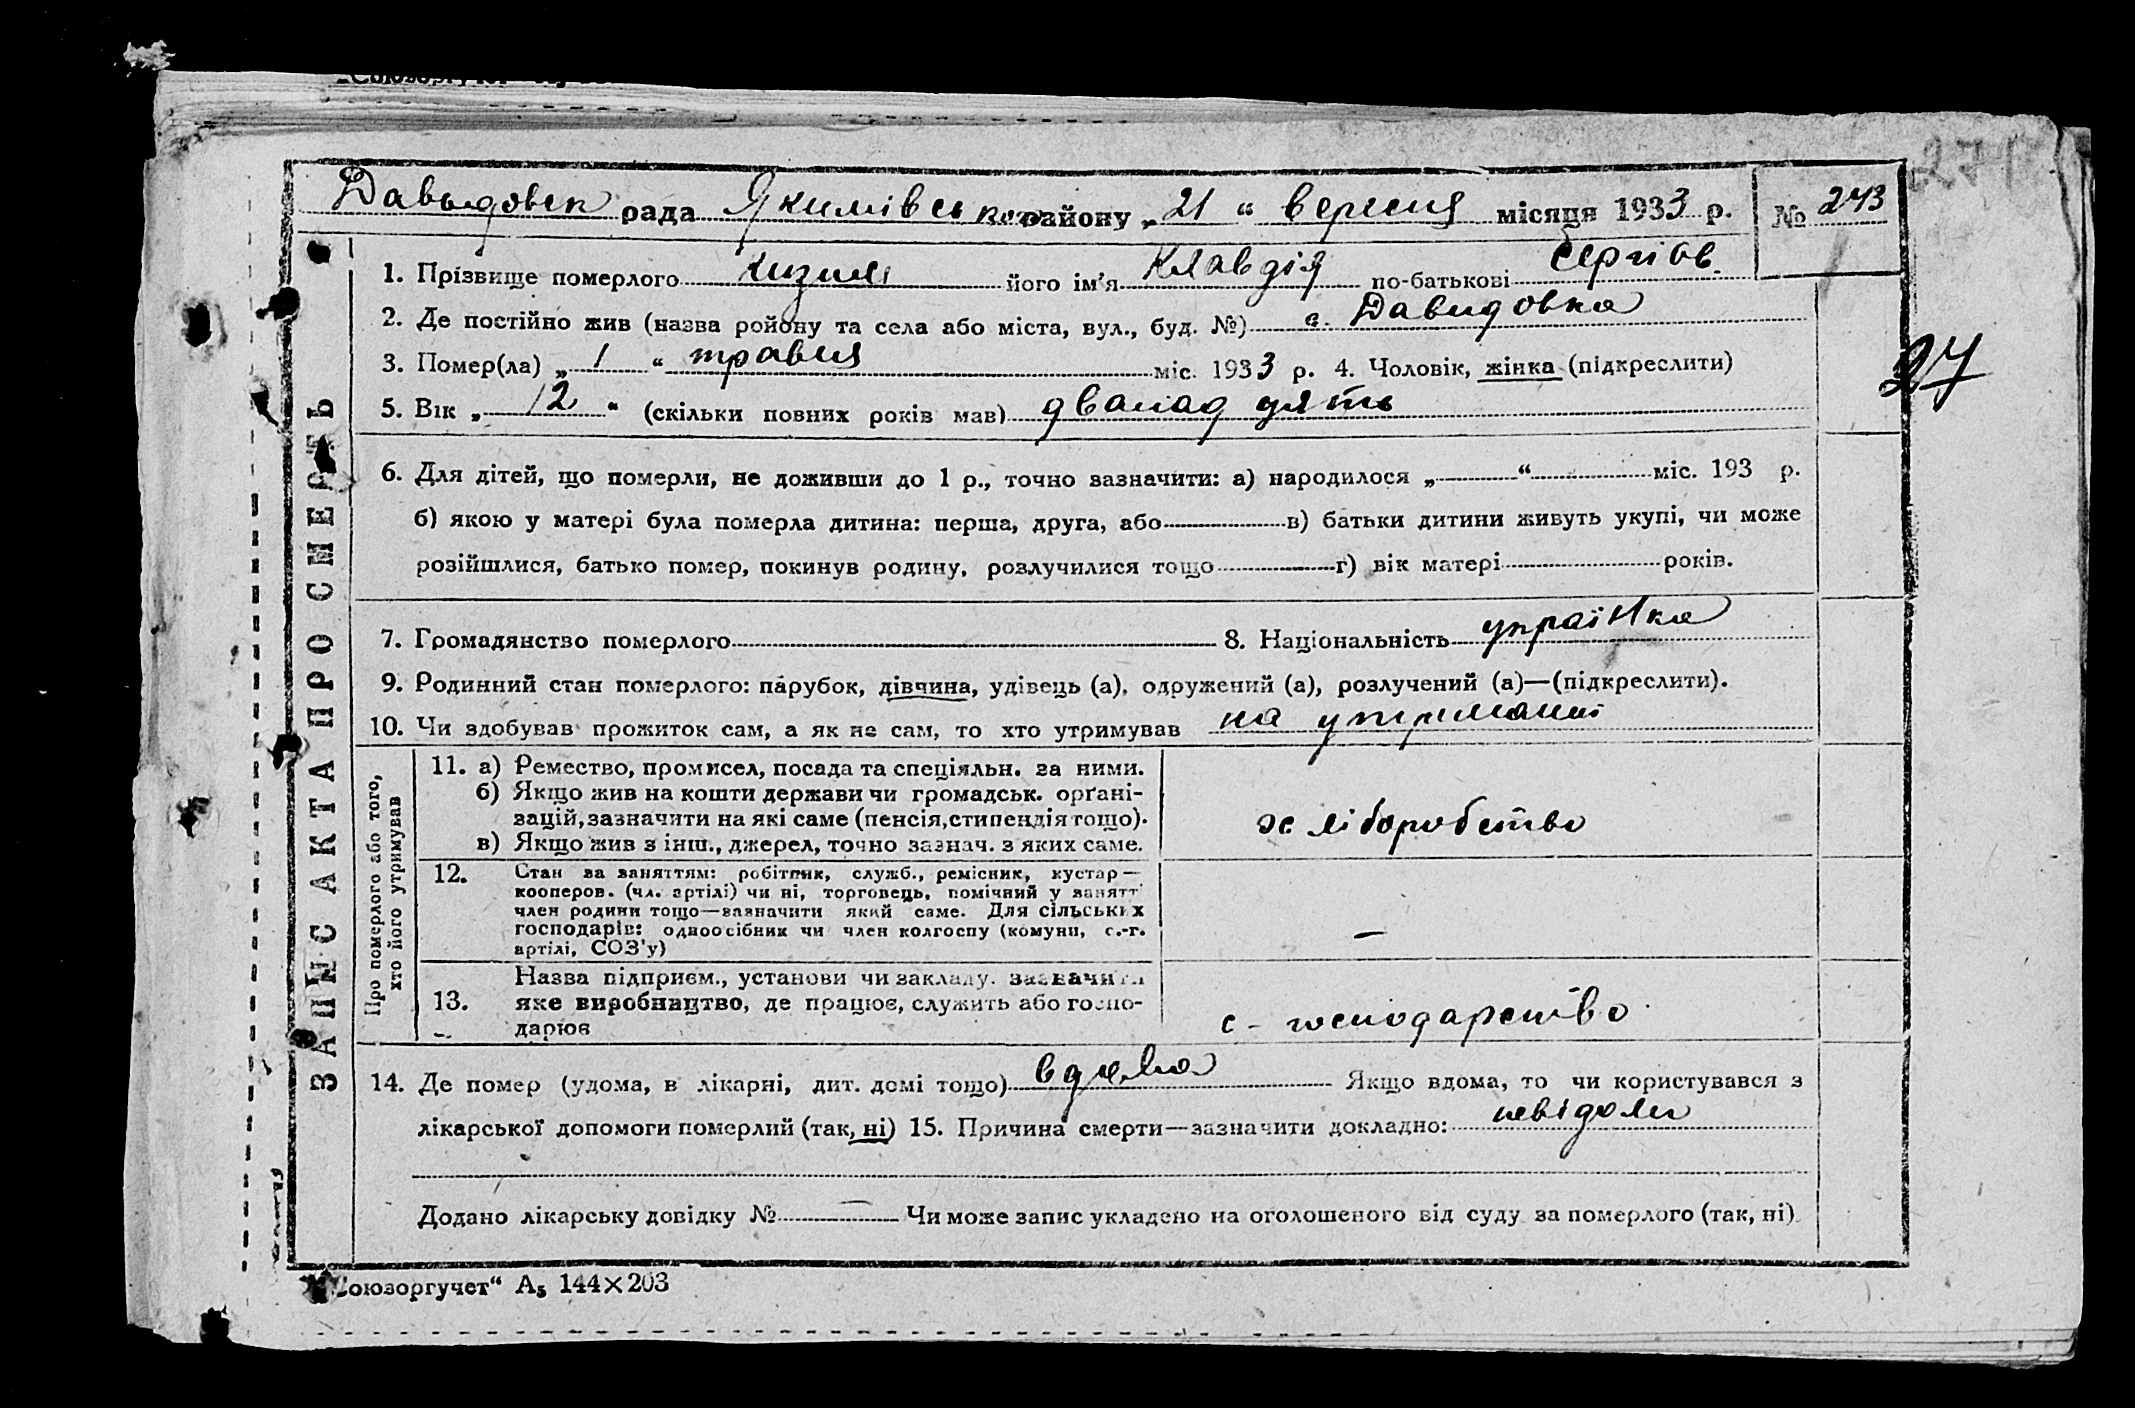 Давыдовск рада Якимівського району „21“ вересня місяця 1933 р. № 243
1. Прізвище померлого його ім'я Клавдія по-батькові Сергіов.
2. Де постійно жив (назва ройону та села або міста, вул., буд. №) с. Давидовка
3. Помер(ла) „1“ травня міс. 1933 р. 4. Чоловік, жінка (підкреслити)
27
5. Вік „12“ (скільки повних років мав) дванадцять
6. Для дітей, що померли, не доживши до 1 р., точно зазначити: а) народилося „ “ міс. 193 р.
б) якою у матері була померла дитина: перша, друга, або в) батьки дитини живуть укупі, чи може
розійшлися, батько помер, покинув родину, розлучилися тощо г) вік матері років.
7. Громадянство померлого 8. Національність українка
9. Родинний стан померлого: парубок, дівчина, удівець (а), одружений (а), розлучений (а)—(підкреслити).
10. Чи здобував прожиток сам, а як не сам, то хто утримував на утриманні
ЗАПИС АКТА ПРО СМЕРТЬ
Про померлого або того,
хто його утримував
11. а) Ремество, промисел, посада та спеціяльн. за ними.
б) Якщо жив на кошти держави чи громадськ. орґані-
зацій, зазначити на які саме (пенсія, стипендія тощо).
в) Якщо жив з інш., джерел, точно зазнач. з яких саме.
хліборобство
12. Стан за заняттям: робітник, служб., ремісник, кустар—
кооперов. (чл. артілі) чи ні, торговець, помічний у занятт
член родини тощо—зазначити який саме. Для сільських
господарів: одноосібник чи член колгоспу (комуни, с.-г.
артілі, СОЗ'у)
—
Назва підприєм., установи чи закладу. зазначити
13. яке виробництво, де працює, служить або госпо-
дарює
с-господарство
14. Де помер (удома, в лікарні, дит. домі тощо) вдома Якщо вдома, то чи користувався з
лікарської допомоги померлий (так, ні) 15. Причина смерти—зазначити докладно: невідомо
Додано лікарську довідку № — Чи може запис укладено на оголошеного від суду за померлого (так, ні).
„Союзоргучет“ А5 144×203